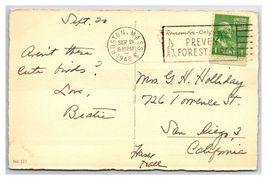 Sept. 20
Aren't these
cute birds?
Love,
Beatie
BOSTON, MASS.
SEP 21
1948
Remember - Only
PREVE
FOREST
Mrs. G. H. Holliday
726 Torrence St.
San Diego, 3
California